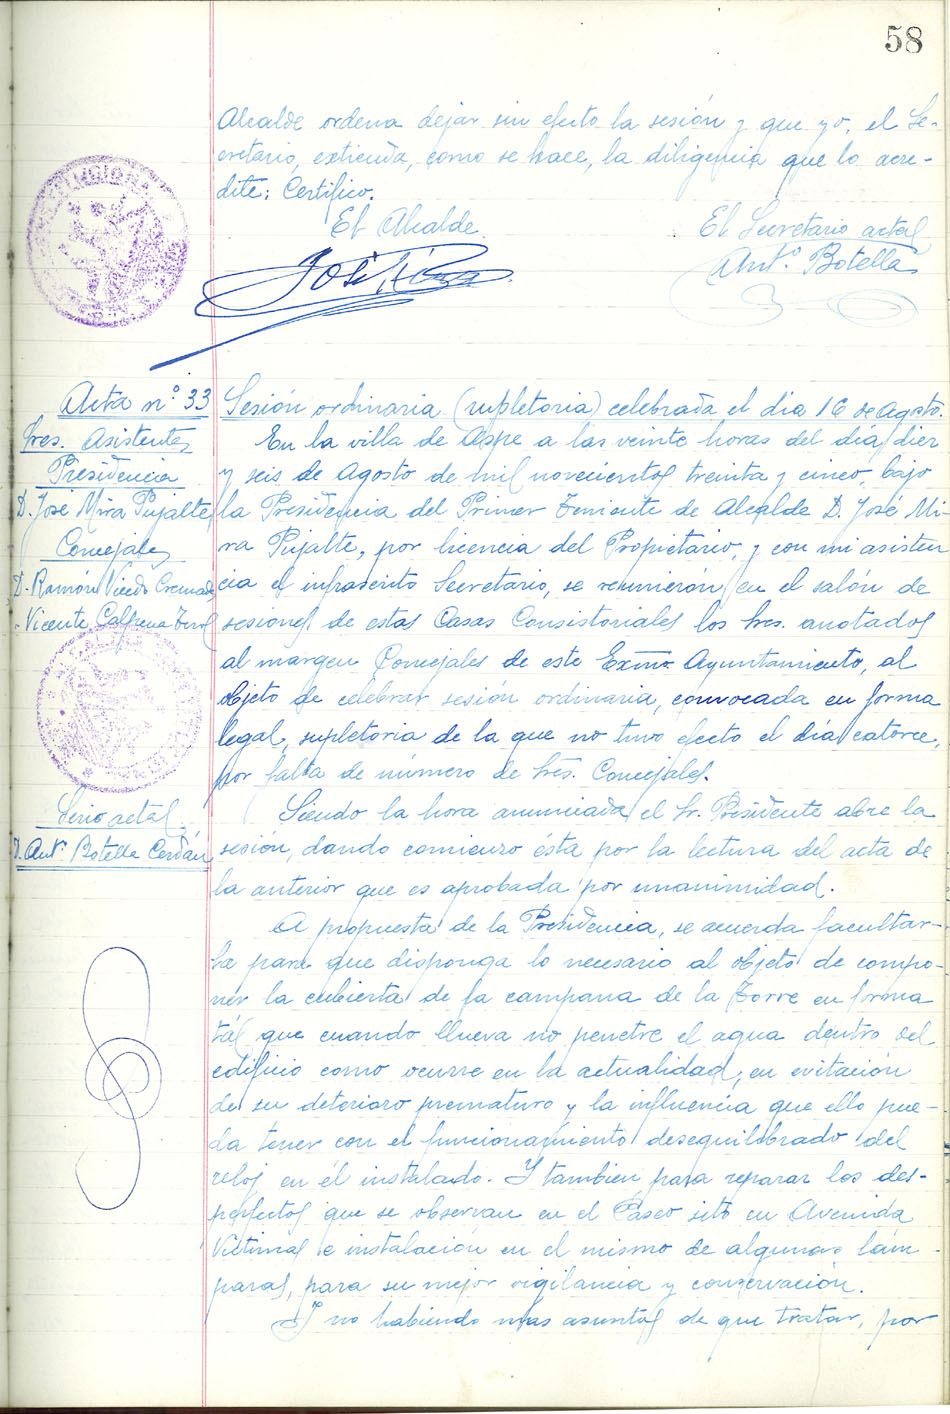 58
Alcalde ordena dejar sin efecto la sesión y que yo, el Se-
cretario, extienda, como se hace, la diligencia que lo acre-
dite: Certifico.
El Alcalde
El Secretario actal
José Mira
Antº Botella
Acta nº 33
Sres. Asistentes
Presidencia
D. José Mira Pujalte
Concejales
D. Ramón Vicedo Cremades
" Vicente Calpena
Srio actal
D. Antº Botella Cerdán
Sesión ordinaria (supletoria) celebrada el día 16 de Agosto.
En la villa de Aspe a las veinte horas del día diez
y seis de Agosto de mil novecientos treinta y cinco, bajo
la Presidencia del Primer Teniente de Alcalde D. José Mi-
ra Pujalte, por licencia del Propietario, y con mi asisten
cia el infrascrito Secretario, se reunieron en el salón de
sesiones de estas Casas Consistoriales los Sres. anotados
al margen Concejales de este Exmo. Ayuntamiento, al
objeto de celebrar sesión ordinaria, convocada en forma
legal, supletoria de la que no tuvo efecto el día catorce,
por falta de número de Sres. Concejales.
Siendo la hora anunciada el Sr. Presidente abre la
sesión, dando comienzo ésta por la lectura del acta de
la anterior que es aprobada por unanimidad.
A propuesta de la Presidencia, se acuerda facultar-
la para que disponga lo necesario al objeto de compo-
ner la cubierta de la campana de la Torre en forma
tál que cuando llueva no penetre el agua dentro del
edificio como ocurre en la actualidad, en evitación
de su deterioro prematuro y la influencia que ello pue-
da tener con el funcionamiento desequilibrado del
reloj en él instalado. Y tambien para reparar los des-
perfectos que se observan en el Paseo sito en Avenida
Victimas e instalación en el mismo de algunas lám-
paras, para su mejor vigilancia y conservación.
Y no habiendo mas asuntos de que tratar, por